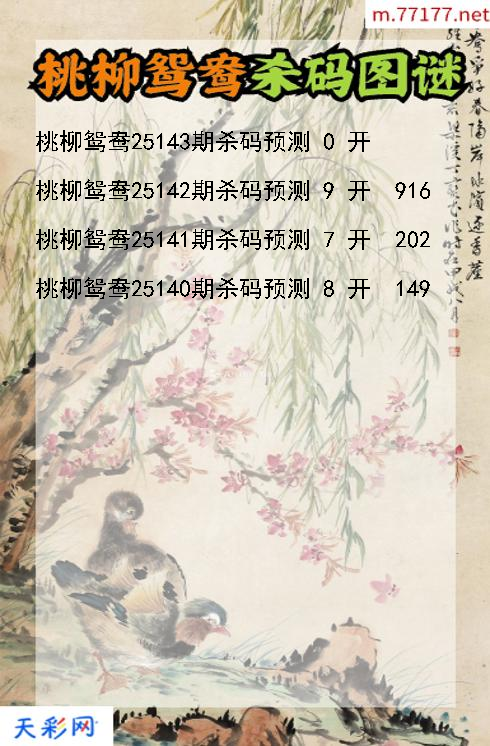 m.77177.net
桃柳鸳鸯杀码图谜
桃柳鸳鸯25143期杀码预测 0 开
桃柳鸳鸯25142期杀码预测 9 开 916
桃柳鸳鸯25141期杀码预测 7 开 202
桃柳鸳鸯25140期杀码预测 8 开 149
天彩网